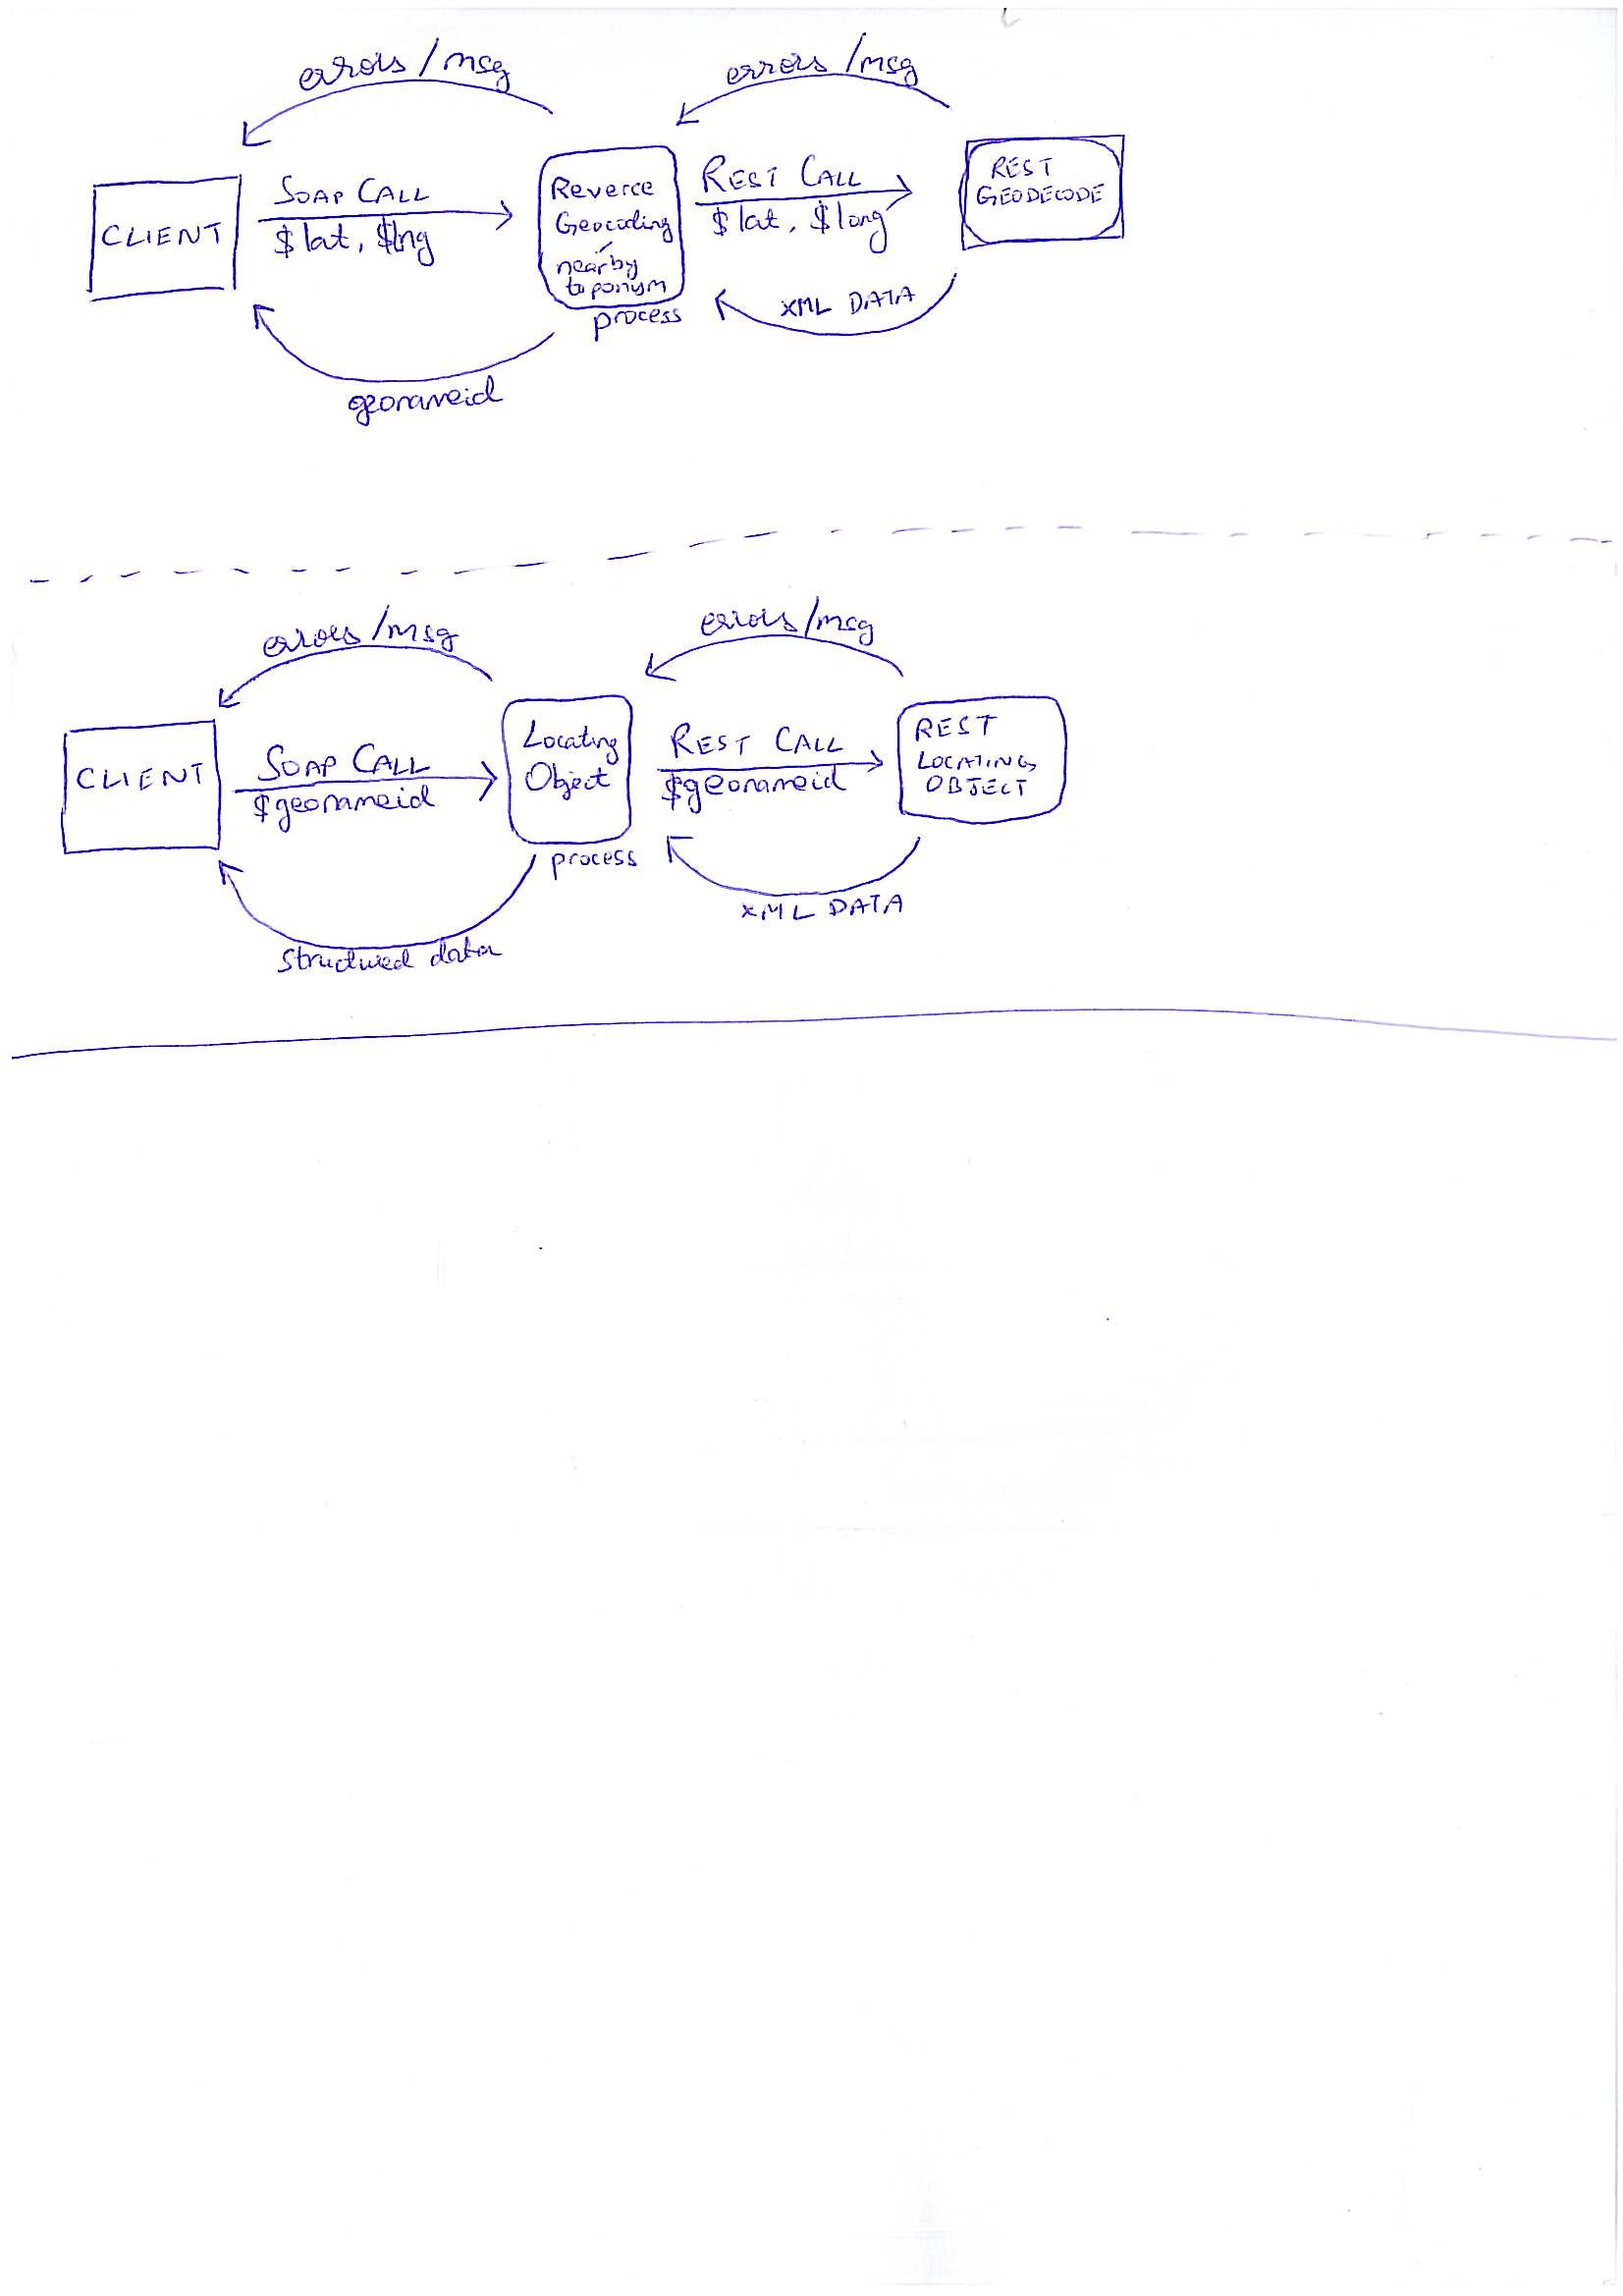 errors/msg
errors/msg
CLIENT
SOAP CALL
$lat, $lng
Reverce
Geocoding
nearby
toponym
process
REST CALL
$lat, $long
REST
GEODECODE
XML DATA
geonameid
errors/msg
errors/msg
CLIENT
SOAP CALL
$geonameid
Locating
Object
process
REST CALL
$geonameid
REST
LOCATING
OBJECT
XML DATA
Structured data